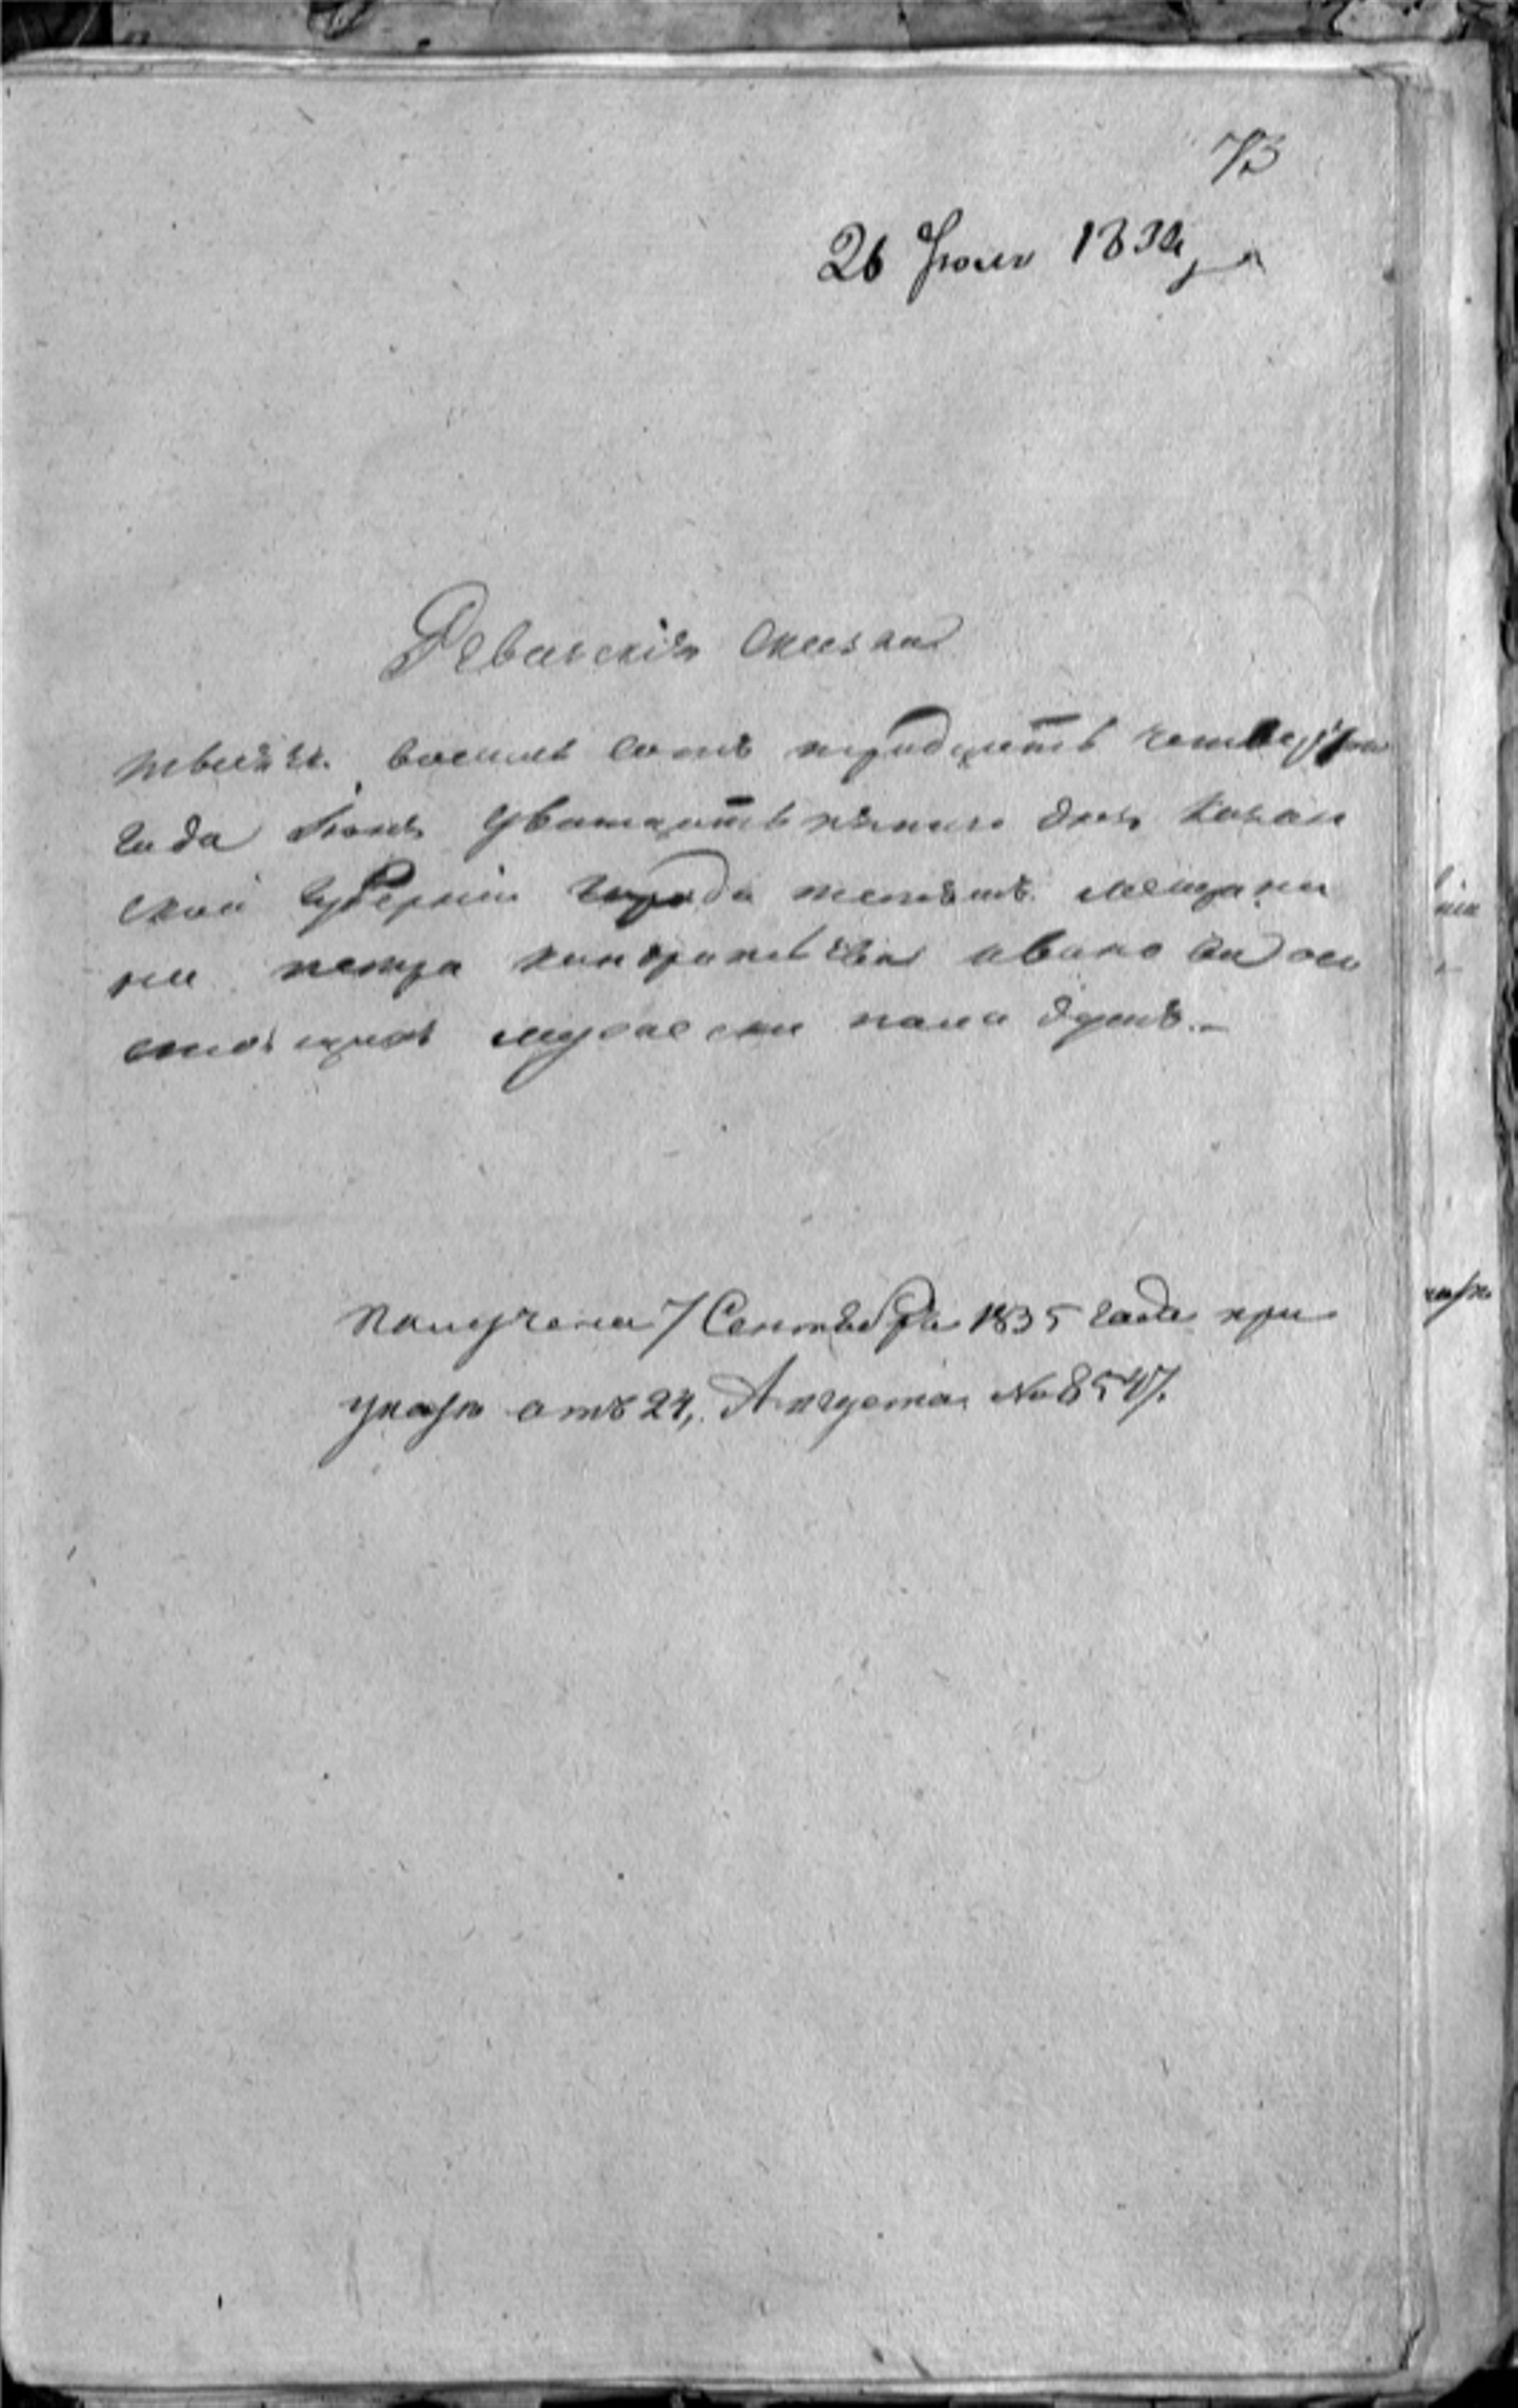 73
26 Июня 1834 г.
Ревижская скаска
тысеча восемь сотъ тридцать четвертаго
года Июня дватцать пятаго дня Казан
ской Губернии города мещани
на петра кондратьева иванова о со
стоящихъ мужеска пола душъ.
Получена 7 Сентября 1835 года при
указе отъ 24, Августа № 8547.